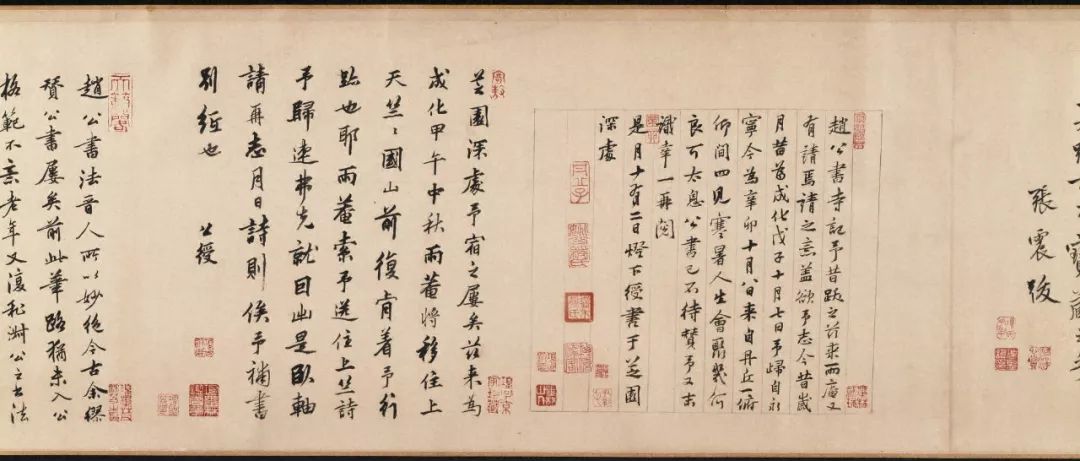 張震跋
趙公書寺記予昔跋之茲來雨庵又
有請焉請之意盖欲予志今昔歲
月昔為成化戊子十月七日予歸自永
寧今為辛卯十月八日來自丹丘一俯
仰間四見寒暑人生會聚幾何
良可太息公書已不待贊予又
識幸一再閱
是月十有二日燈下綬書于芝園
深處
芝園深處予宿之屢矣茲來為
成化甲午中秋雨菴將移住上
天竺〻國山前復肯着予行
跡也耶雨菴索予送住上竺詩
予歸速弗先就回出是臥軸
請再志月日詩則俟予補書
別紙也 公綬
趙公書法晉人所以妙絶今古余繆
贊公書屢矣前此華路猶未入公
格範不意老年又復私淑公之古法